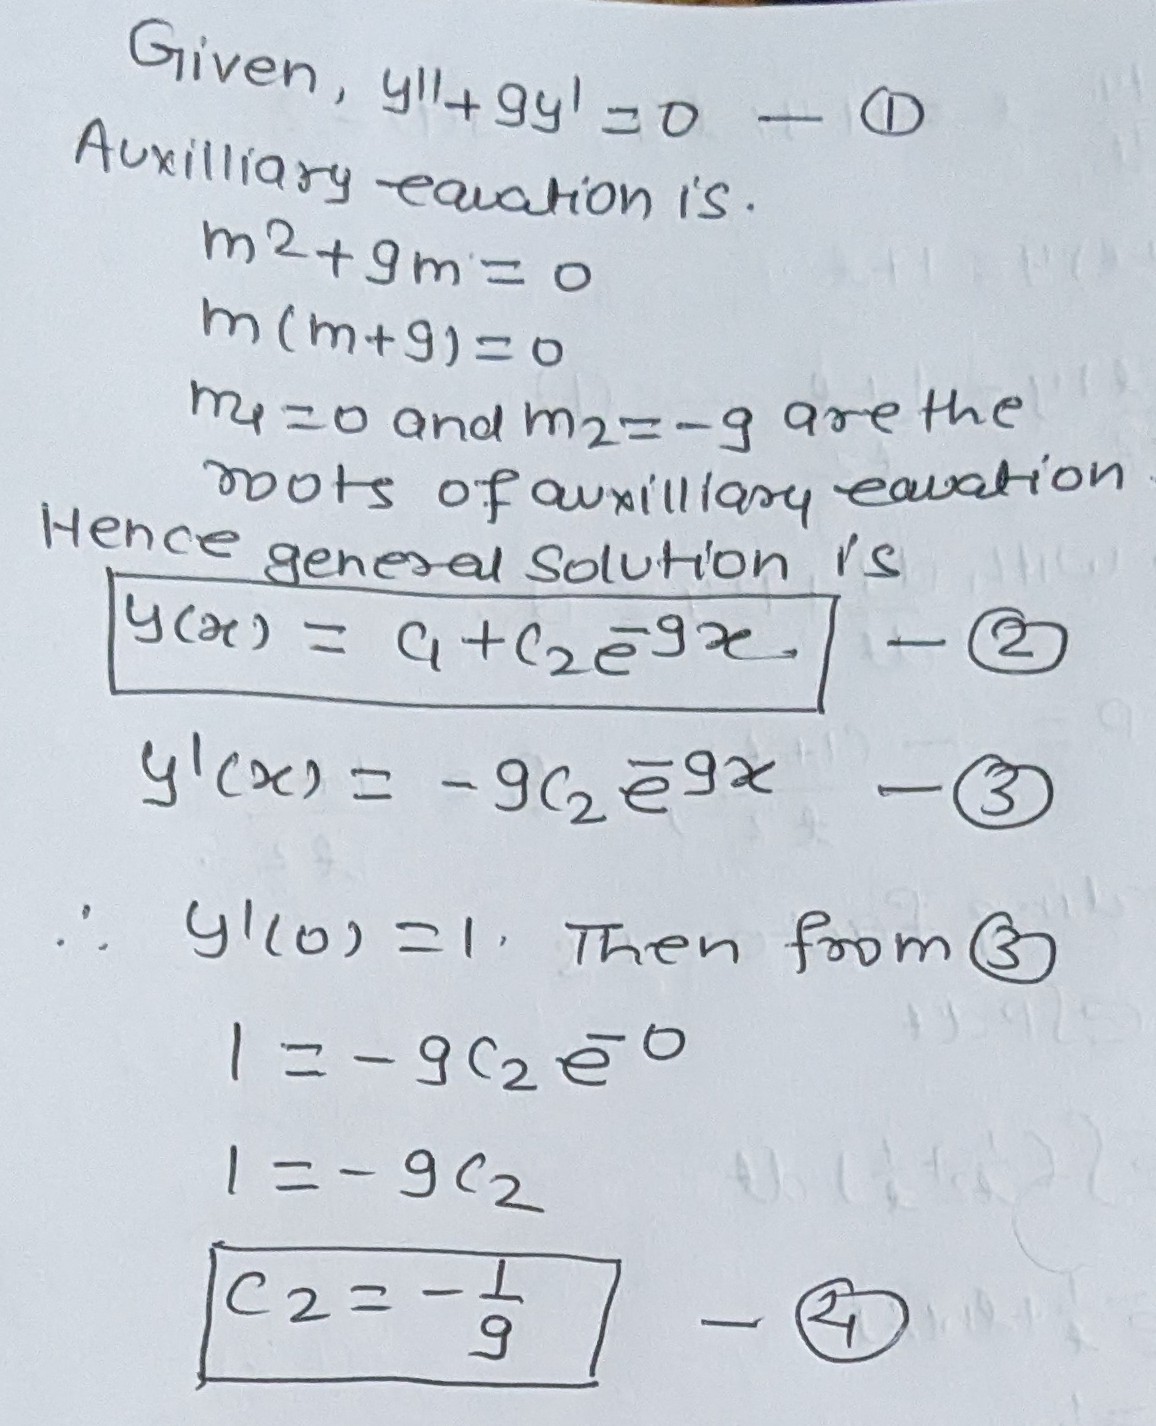 Given, y''+9y'=0 — ①
Auxilliary equation is.
m2+9m=0
m(m+9)=0
m1=0 and m2=-9 are the
roots of auxilliary equation.
Hence general solution is
y(x) = C1+C2e^-9x. — ②
y'(x) = -9C2 e^-9x — ③
∴ y'(0)=1. Then from ③
1 = -9C2 e^-0
1 = -9C2
C2 = -1/9 — ④